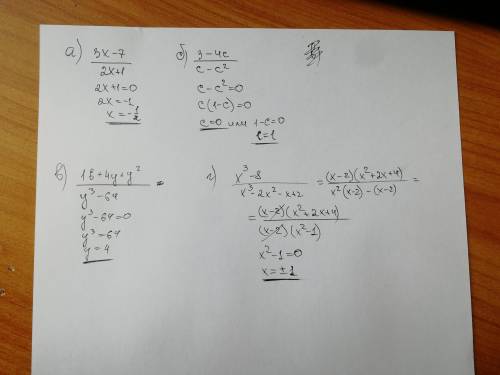 а) (3x-7)/(2x+1)
2x+1=0
2x=-1
x=-1/2
б) (3-4c)/(c-c²)
c-c²=0
c(1-c)=0
c=0 или 1-c=0
c=1
в) (16+4y+y²)/(y³-64) =
y³-64=0
y³=64
y=4
г) (x³-8)/(x³-2x²-x+2) = (x-2)(x²+2x+4)/(x²(x-2)-(x-2)) =
= (x-2)(x²+2x+4)/((x-2)(x²-1))
x²-1=0
x=±1